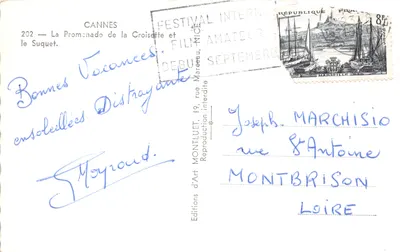 CANNES
202 — La Promenade de la Croisette et
le Suquet.
FESTIVAL INTERN
FILM AMATEUR
DEBUT SEPTEMBRE
REPUBLIQUE FRANÇAISE
8F
Bonnes Vacances
ensoleillées Distrayantes
Joseph MARCHISIO
rue St Antoine
MONTBRISON
LOIRE
Editions d'Art MONTLUET, 19, rue NICE
Reproduction interdite